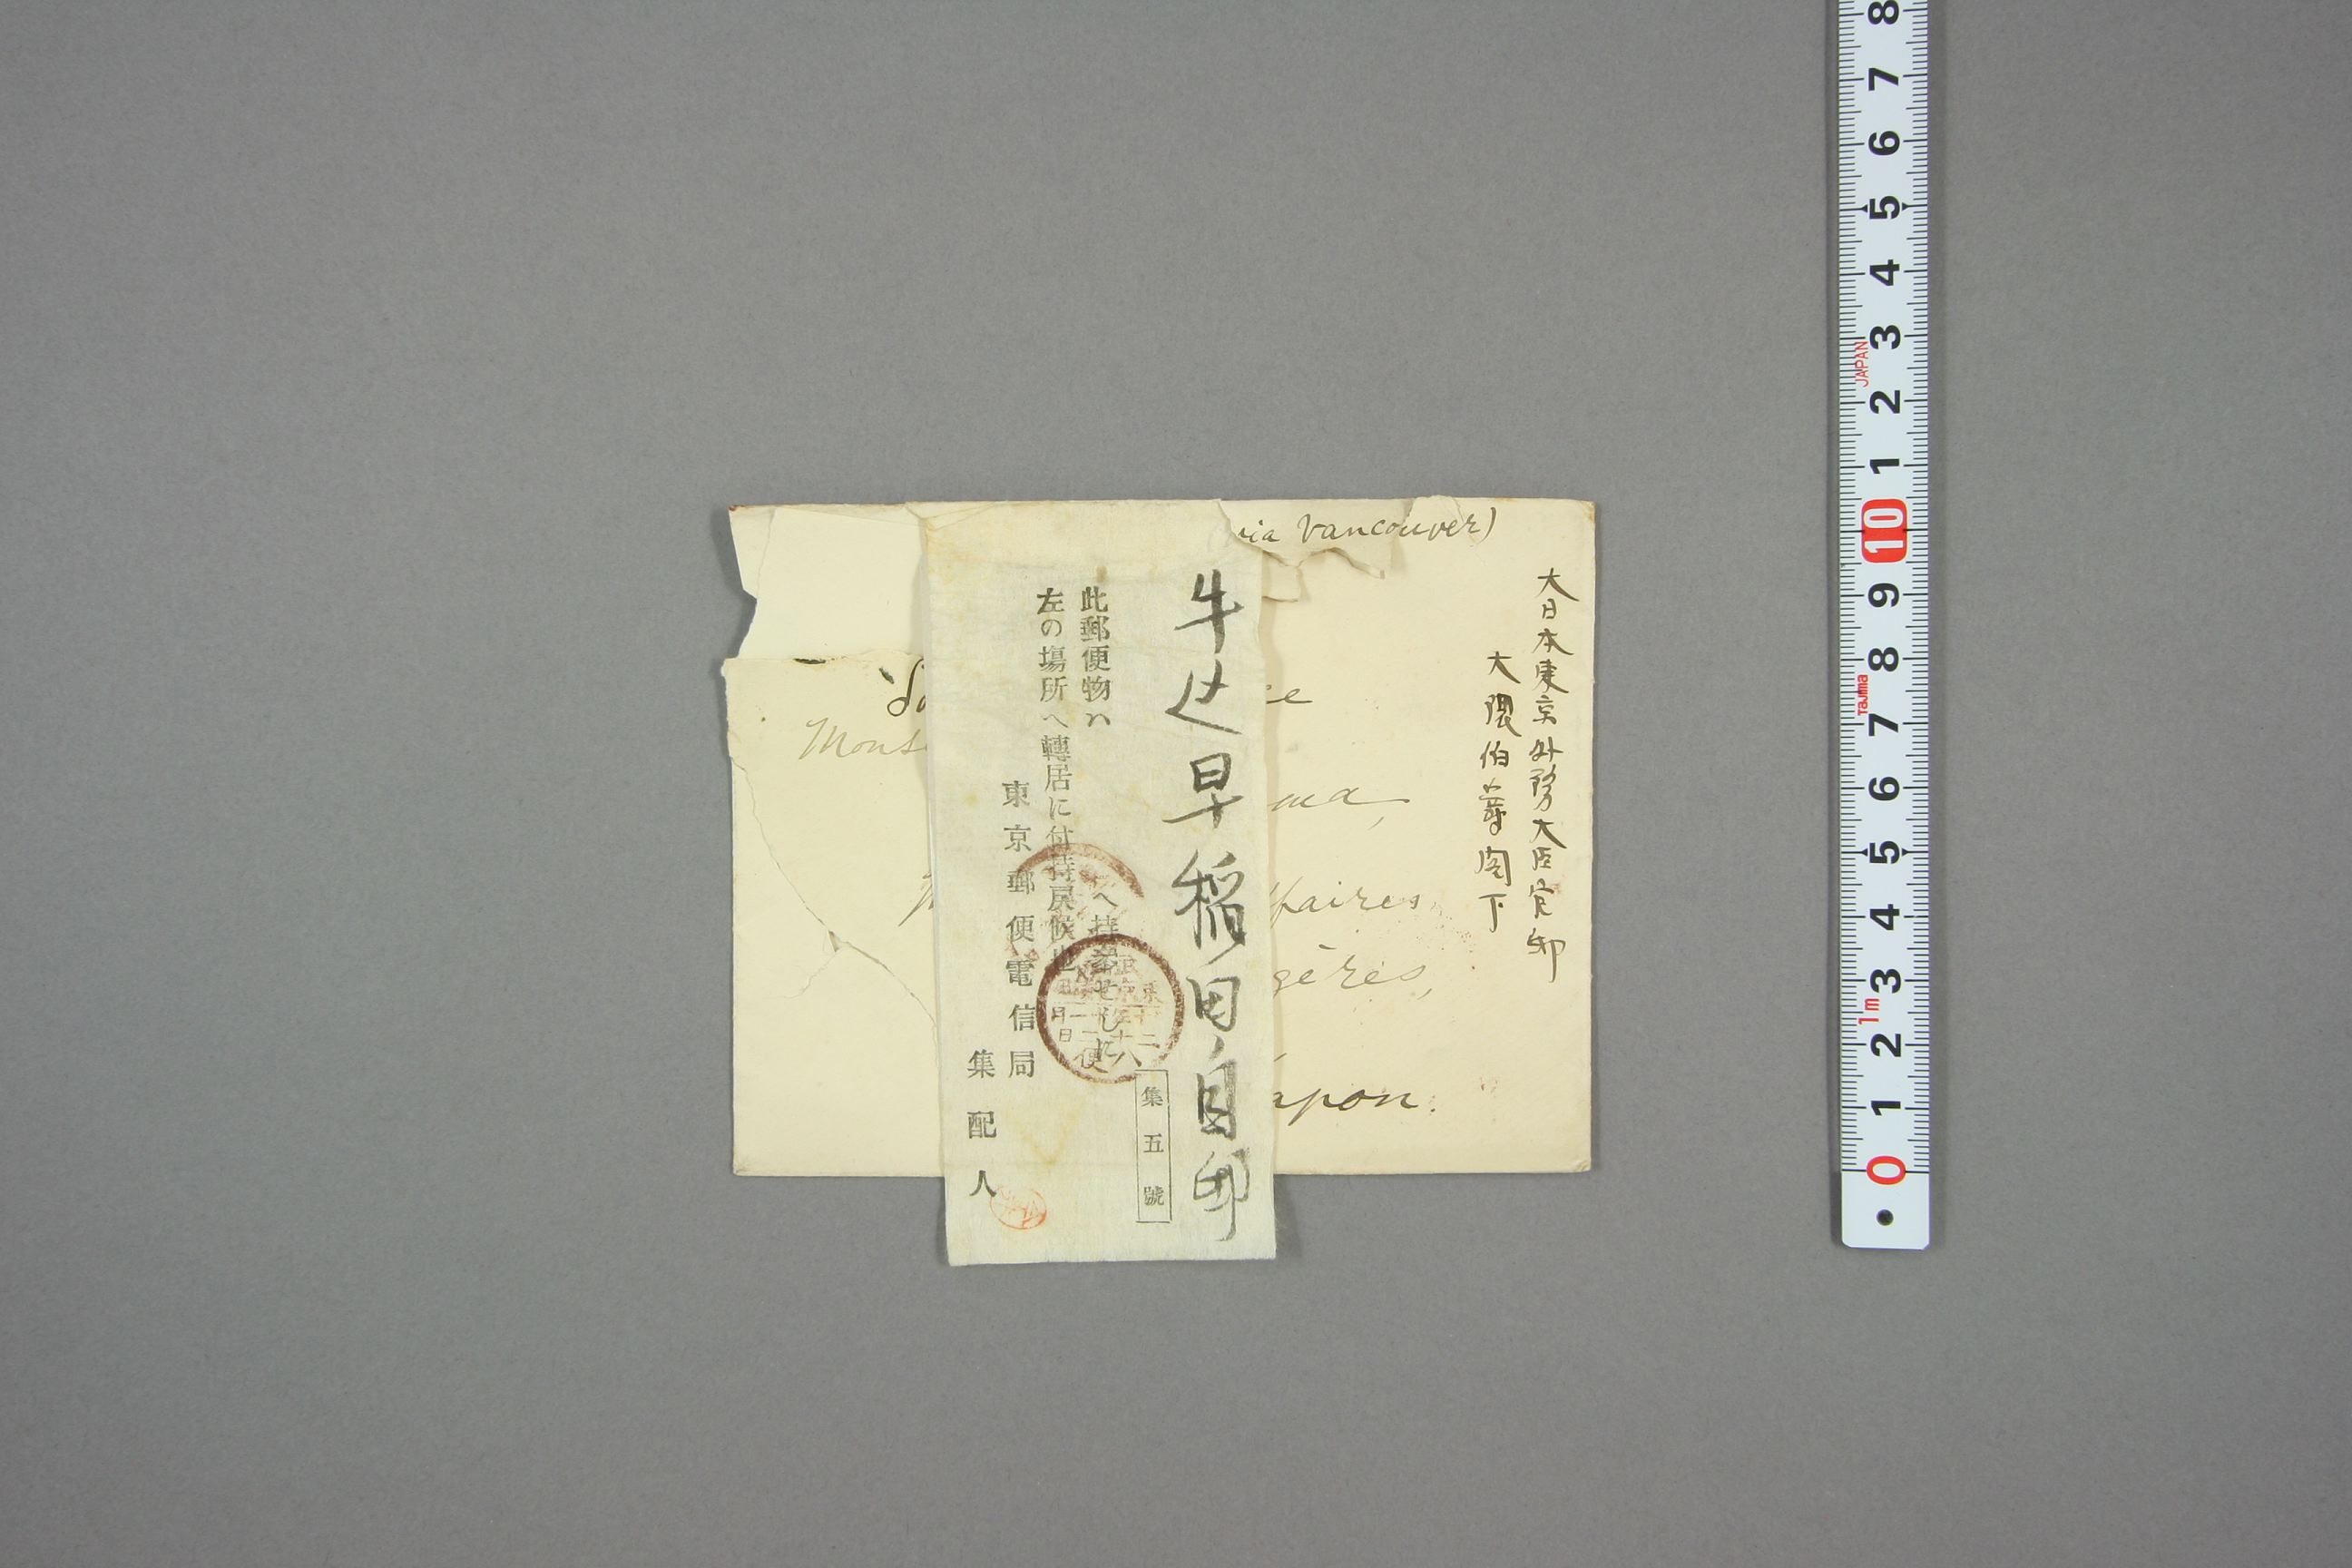 via Vancouver)
大日本東京外務大臣官邸
大隈伯爵閣下
牛込早稲田自邸
集五號
此郵便物ハ
へ持
左の塲所へ轉居に付持戻候也
東京郵便電信局
集配人
ma,
ffaires
gères,
apon.
8
7
6
5
4
3
JAPAN
2
1
10
9
8
Tajima
7
6
5
4
3
1m
2
1
0